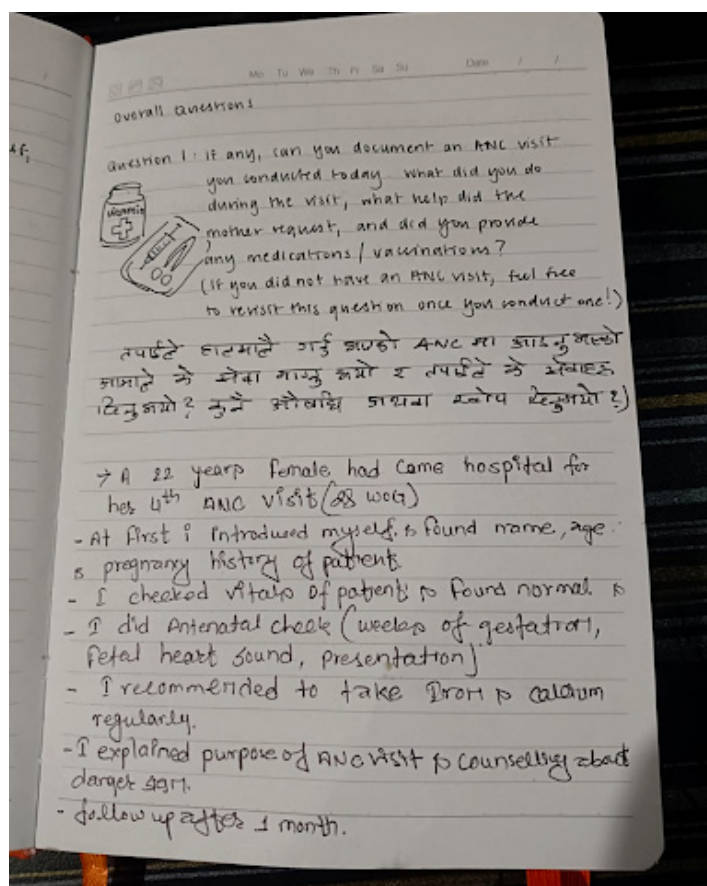 Mo Tu We Th Fr Sa Su Date / /
Overall Questions
Question 1: if any, can you document an ANC visit
you conducted today. What did you do
during the visit, what help did the
mother request, and did you provide
any medications / vaccinations?
(If you did not have an ANC visit, feel free
to revisit this question once you conduct one!)
vitamin
तपाईले हालसालै गर्नु भएको ANC मा आउनु भएको
आमाले के सेवा माग्नु भयो र तपाईले के सेवाहरु
दिनुभयो? कुनै औषधि अथवा खोप दिनुभयो?)
→ A 22 years female had come hospital for
her 4th ANC visit (28 WOG)
- At first i introduced myself & found name, age
& pregnancy history of patients
- I checked vitals of patients & found normal &
- I did Antenatal check (weeks of gestation,
fetal heart sound, presentation)
- I recommended to take Iron & calcium
regularly.
- I explained purpose of ANC visit & counselling about
danger sign.
- follow up after 1 month.